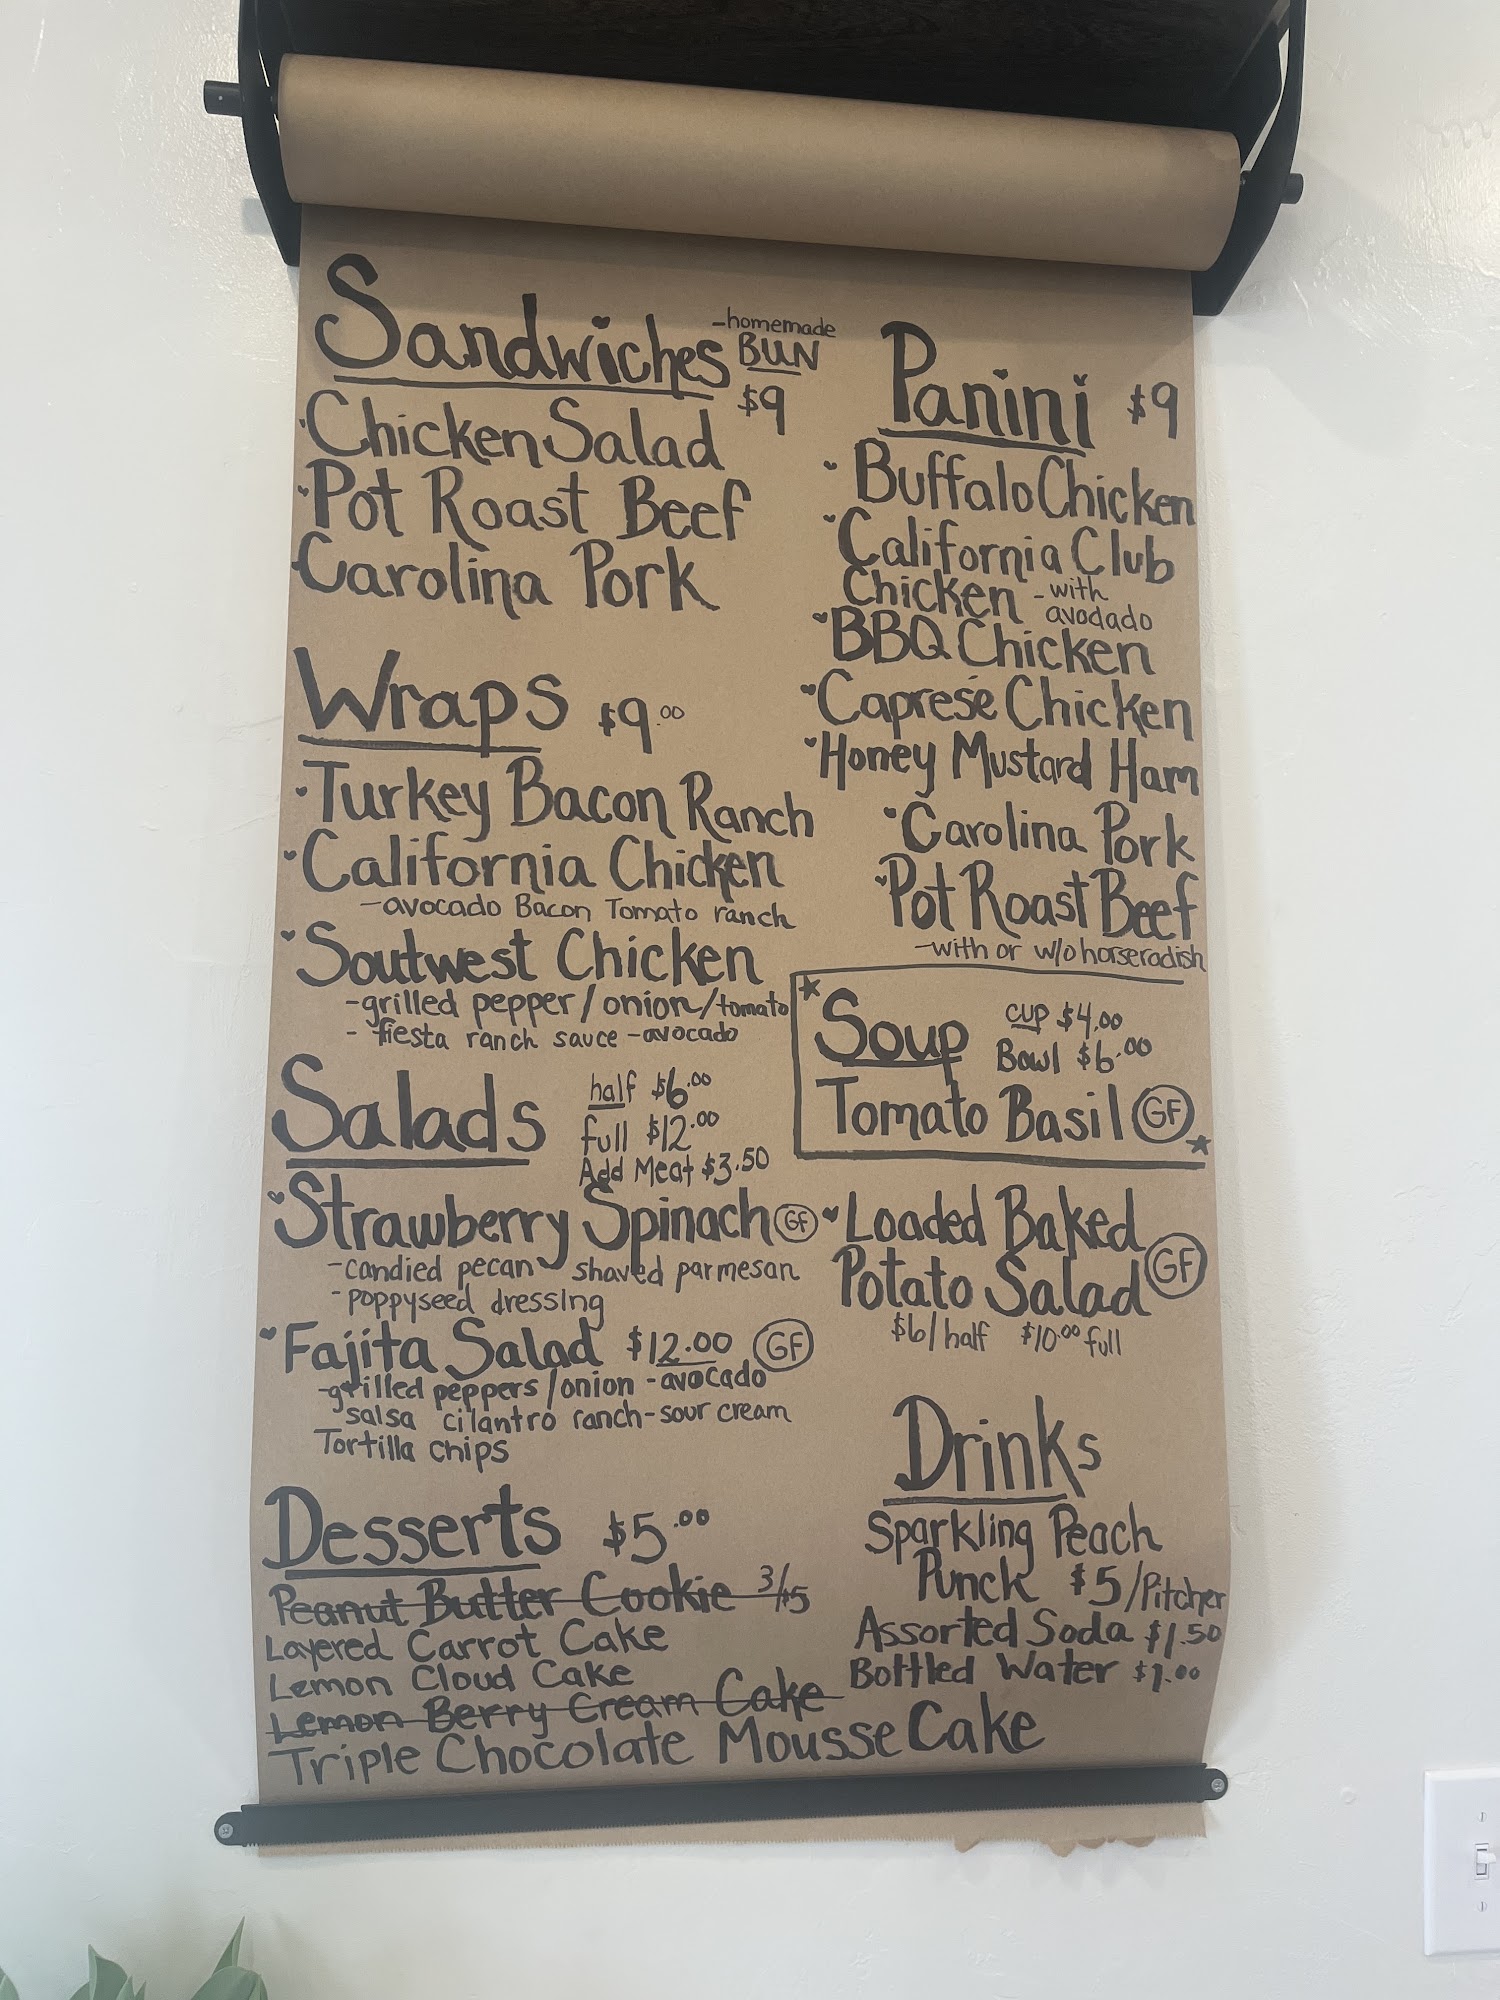 Sandwiches -homemade BUN
$9
Chicken Salad
Pot Roast Beef
Carolina Pork
Wraps $9.00
Turkey Bacon Ranch
California Chicken
-avocado Bacon Tomato ranch
Soutwest Chicken
-grilled pepper/onion/tomato
- fiesta ranch sauce -avocado
Salads
half $6.00
full $12.00
Add Meat $3.50
Strawberry Spinach GF
-candied pecan shaved parmesan
-poppyseed dressing
Fajita Salad $12.00 GF
-grilled peppers/onion -avocado
salsa cilantro ranch-sour cream
Tortilla chips
Desserts $5.00
Peanut Butter Cookie 3/$5
Layered Carrot Cake
Lemon Cloud Cake
Lemon Berry Cream Cake
Triple Chocolate Mousse Cake
Panini $9
Buffalo Chicken
California Club
Chicken -with
avodado
BBQ Chicken
Caprese Chicken
Honey Mustard Ham
Carolina Pork
Pot Roast Beef
-with or w/o horseradish
Soup
cup $4.00
Bowl $6.00
Tomato Basil GF
Loaded Baked
Potato Salad GF
$6/half $10.00 full
Drinks
Sparkling Peach
Punck $5/Pitcher
Assorted Soda $1.50
Bottled Water $1.00